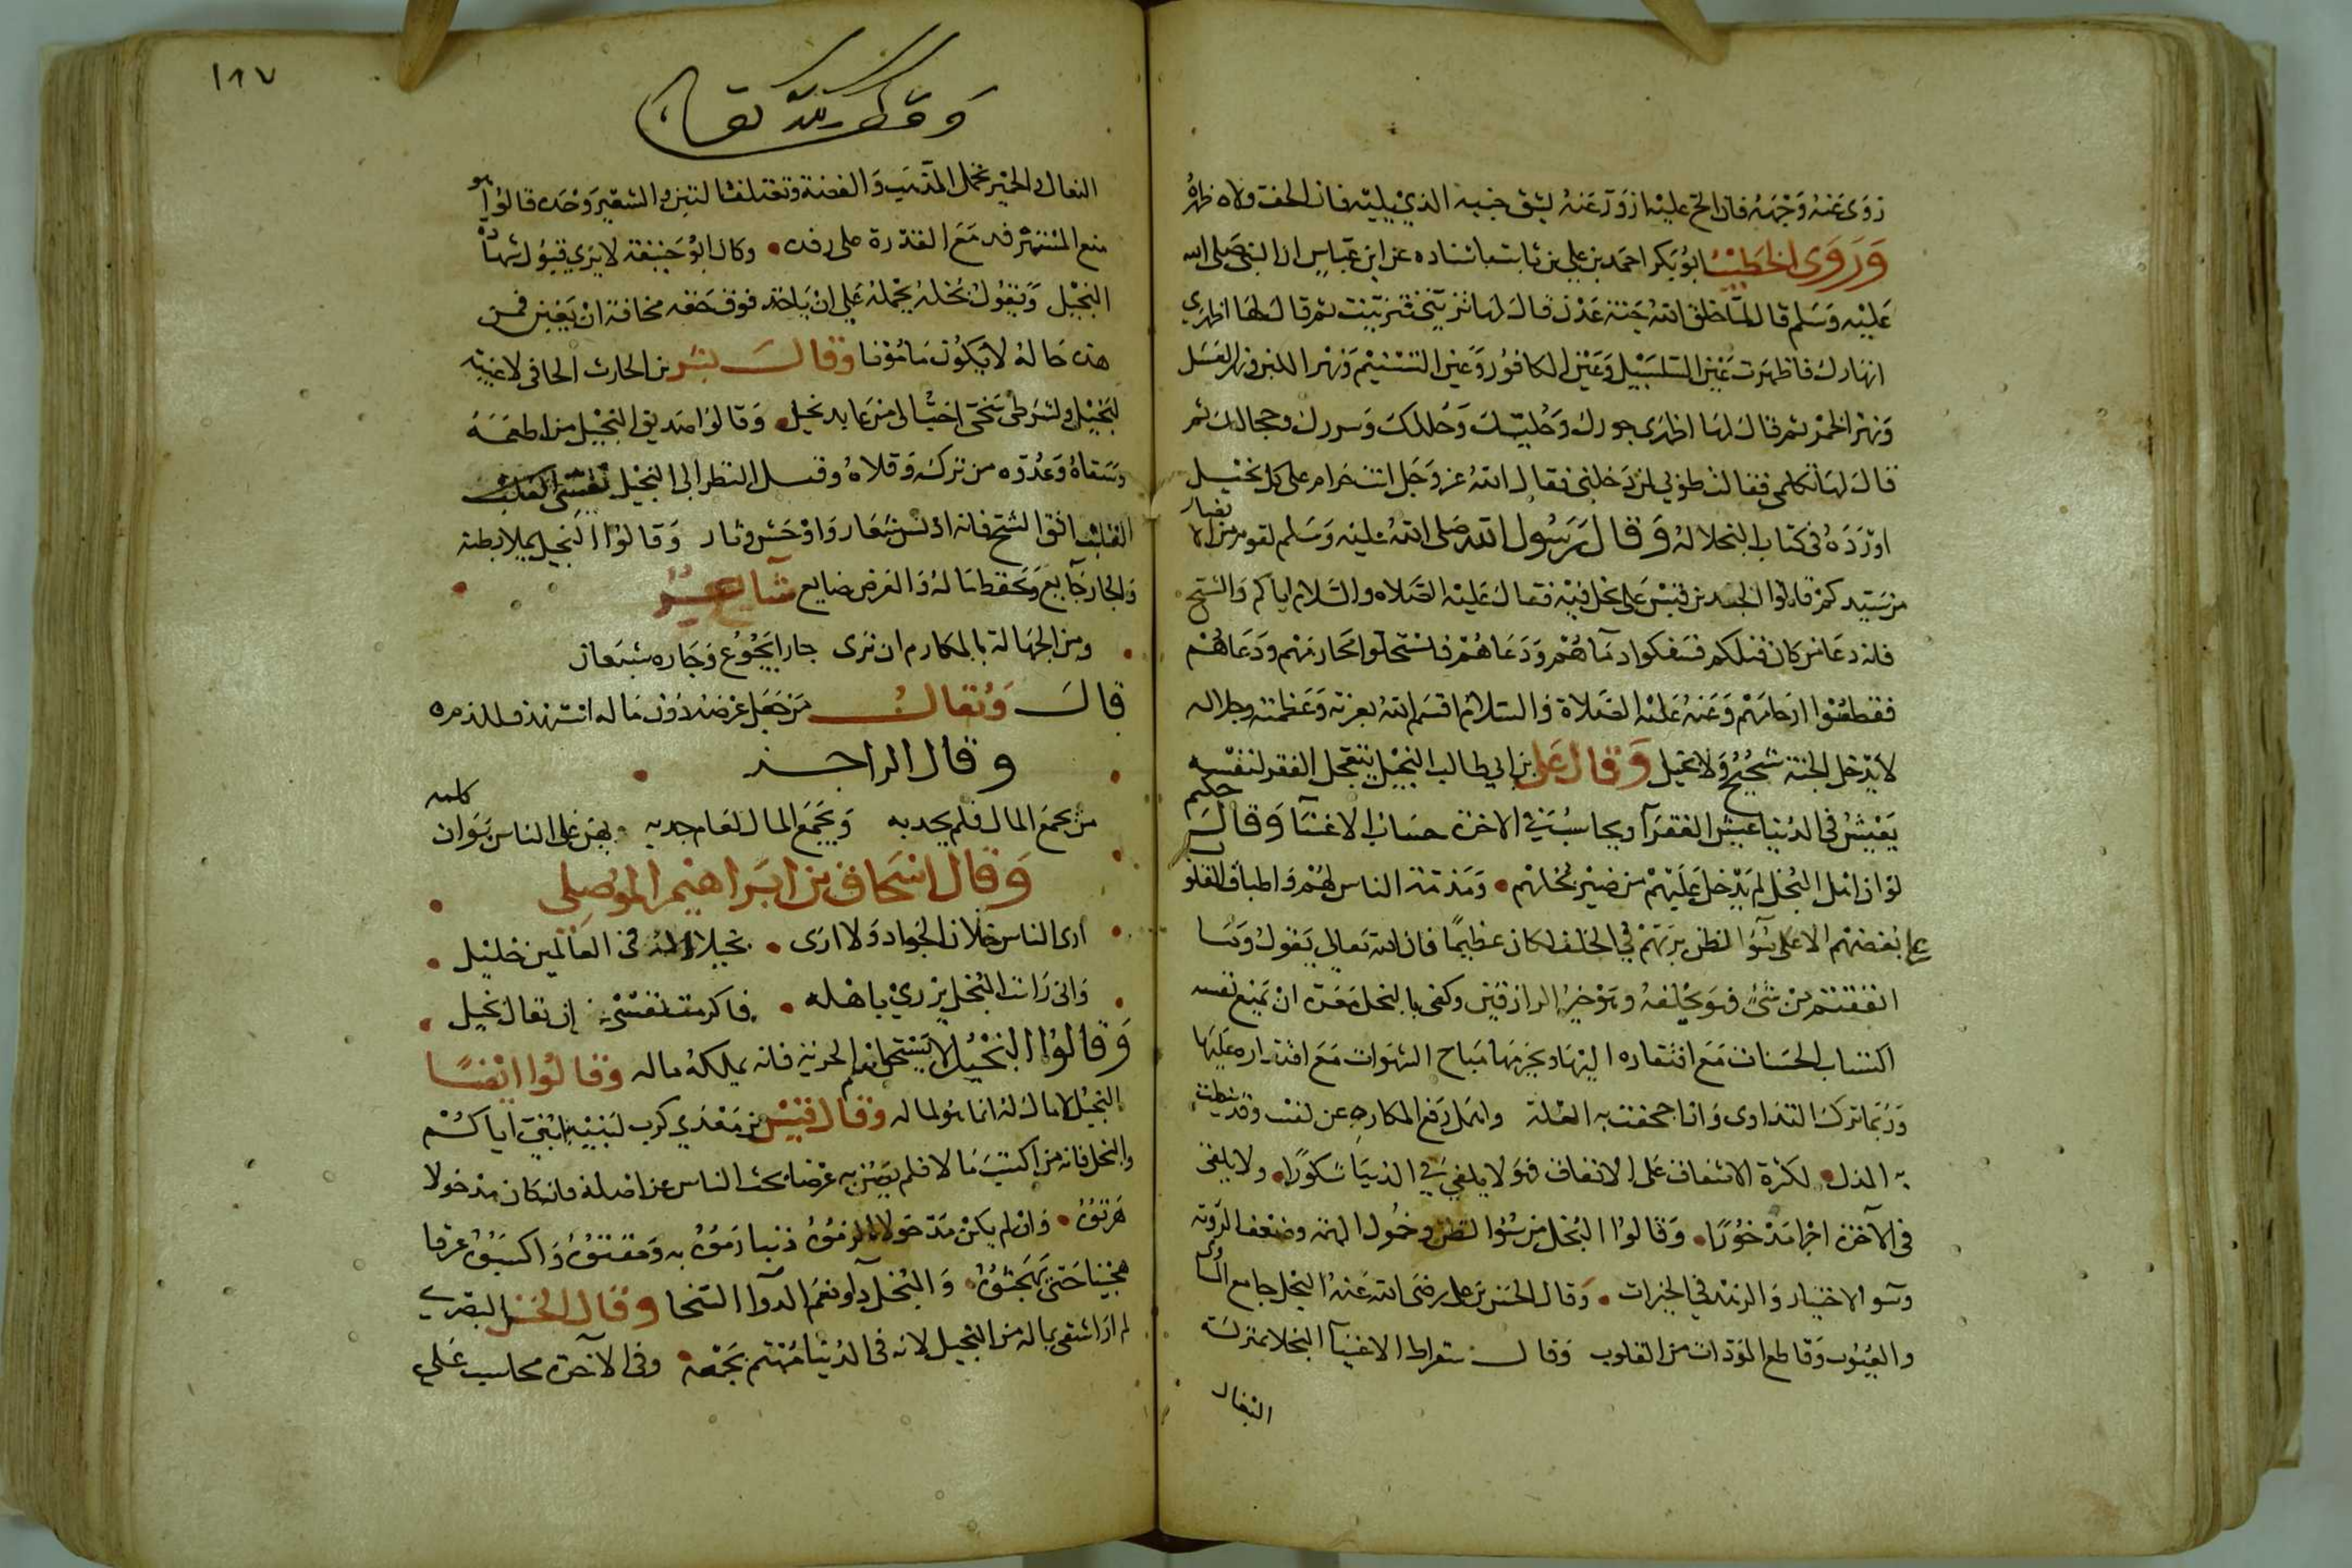 زوى عنه وجهه فان الح عليه ازور عنه بشق جنبه الذي يليه فان الحف ولاه ظهره
وَرَوَى الخطيب ابو بكر احمد بن علي بن ثابت باسناده عن ابن عباس ان النبي صلى الله
عليه وسلم قال لما خلق الله جنة عدن قال لها تزيني فتزينت ثم قال لها اظهري
انهارك فاظهرت عين السلسبيل وعين الكافور وعين التسنيم ونهر اللبن ونهر العسل
ونهر الخمر ثم قال لها اظهري حورك وحليك وحللك وسررك وحجالك ثم
قال لها تكلمي فقالت طوبى لمن دخلني فقال الله عز وجل انت حرام على كل بخيل
اورده في كتاب البخلا له وَقال رسول الله صلى الله عليه وسلم لقوم من الانصار
من سيدكم قالوا الجد بن قيس على بخل فيه فقال عليه الصلاه والسلام اياكم والشح
فانه دعا من كان قبلكم فسفكوا دماهم ودعاهم فاستحلوا محارمهم ودعاهم
فقطعوا ارحامهم وعنه عليه الصلاة والسلام اقسم الله بعزته وعظمته وجلاله
لا يدخل الجنة شحيح ولا بخيل وَقال على بن ابي طالب البخيل يتعجل الفقر لنفسه
يعيش في الدنيا عيش الفقرآ ويحاسب في الاخرة حساب الاغنيآ وَقال حكيم
لو ان اهل البخل لم يدخل عليهم من ضير بخلهم • ومذمة الناس لهم واطباق القلوب
على بغضهم الا على سوء الظن بربهم في الخلف لكان عظيما فان الله تعالى يقول وما
انفقتم من شيء فهو يخلفه وهو خير الرازقين وكفى بالبخل معرة ان يمنع نفسه
اكتساب الحسنات مع افتقاره اليها ويحرمها مباح الشهوات مع اقتداره عليها
وربما ترك التداوى وان اجحفت به العلة واهمل دفع المكاره عن نفسه وقد نطقت
به المذل • لكثرة الاشفاق على الانفاق فهو لا يلفى في الدنيا شكورا • ولا يلقى
في الآخرة اجرا مذخورا • وقالوا البخل من سوء الظن وخمول الهمة وضعف الروية
وسو الاختيار والزهد في الخيرات • وقال الحسن بن على رضى الله عنه البخل جامع المساوى
والعيوب وقاطع المودات من القلوب وقال سقراط الاغنيآ البخلا بمنزلة
البغال
١٨٧
وقف لله تعالى
البغال والحمير تحمل الذهب والفضة وتعتلف التبن والشعير وحده قالوا هو
منع المسترفد مع القدرة على رفده • وكان ابو حنيفة لا يرى قبول شهادة
البخيل ويقول بخله يحمله على ان ياخذ فوق حقه مخافة ان يغبن فمن
هذه حاله لا يكون مامونا وقال بشر بن الحارث الحافى لا غيبة
لبخيل ولشرطى سخى احب الى من عابد بخيل • وقالوا صديق البخيل من اطعمه
وسقاه وعدوه من تركه وقلاه وقيل النظر الى البخيل يقسى القلب
اتق الشح فانه ادنس شعار واوحش دثار وقالوا البخيل يملا بطنه
والجار جايع ويحفظ ماله والعرض ضايع شاعر
ومن الجهالة بالمكارم ان ترى جارا يجوع وجاره شبعان
قال وَيُقال من جعل عرضه دون ماله استهدف للذم
وقال الراجز
من يجمع المال فلم يجد به ويجمع المال لعام جدبه يهن على الناس هوان كلبه
وَقال اسحاق بن ابراهيم الموصلى
ارى الناس خلان الجواد ولا ارى • بخيلا له في العالمين خليل •
وانى رايت البخل يزري باهله • فاكرمت نفسي ان يقال بخيل •
وقالوا البخيل لا يستحق اسم الحرية فانه يملكه ماله وقالوا ايضا
البخيل لا مال له انما هو لماله وقال قيس بن معدي كرب لبنيه يا بني اياكم
والبخل فانه من اكتسب مالا فلم يصن به عرضا بحث الناس عن اصله فان كان مدخولا
هرتوه • وان لم يكن مدخولا الزموه ذنبا رموه به ومقتوه واكسبوه عرقا
هجينا حتى يهجنوه • والبخل دآء ونعم الدوآ السخا وقال الحسن البصرى
لم ار اشقى بماله من البخيل لانه في الدنيا مهتم بجمعه • وفي الآخرة محاسب على